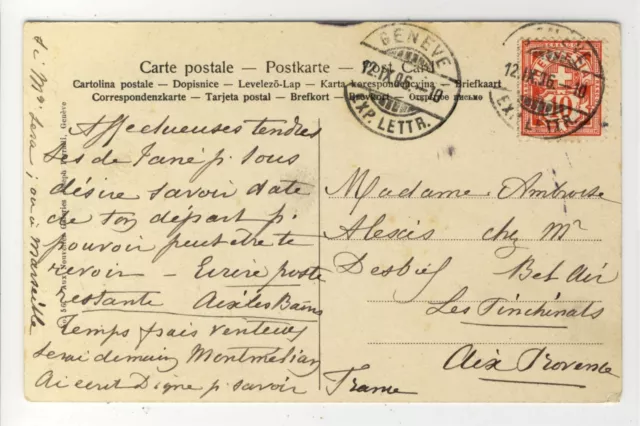 Carte postale — Postkarte — Post Card
Cartolina postale - Dopisnice - Levelező-Lap - Karta korespondencyjna - Briefkaart
Correspondenzkarte - Tarjeta postal - Brefkort - Brevkort - Открытое письмо
GENÈVE
12.IX.06. - 10
EXP. LETTR.
12.IX.06. - 10
EXP. LETTR.
10
Affectueuses tendres
de p. tous
désire savoir date
de ton départ p.
pouvoir peut être te
revoir - Ecrire poste
restante Aix les Bains
Temps frais venteux
serai demain Montmélian
Ai écrit Digne p. savoir
si Mr sera ; ou à Marseille
Madame Ambroise
Alexis chez Mr
Bel Air
Les Pinchinats
Aix Provence
France